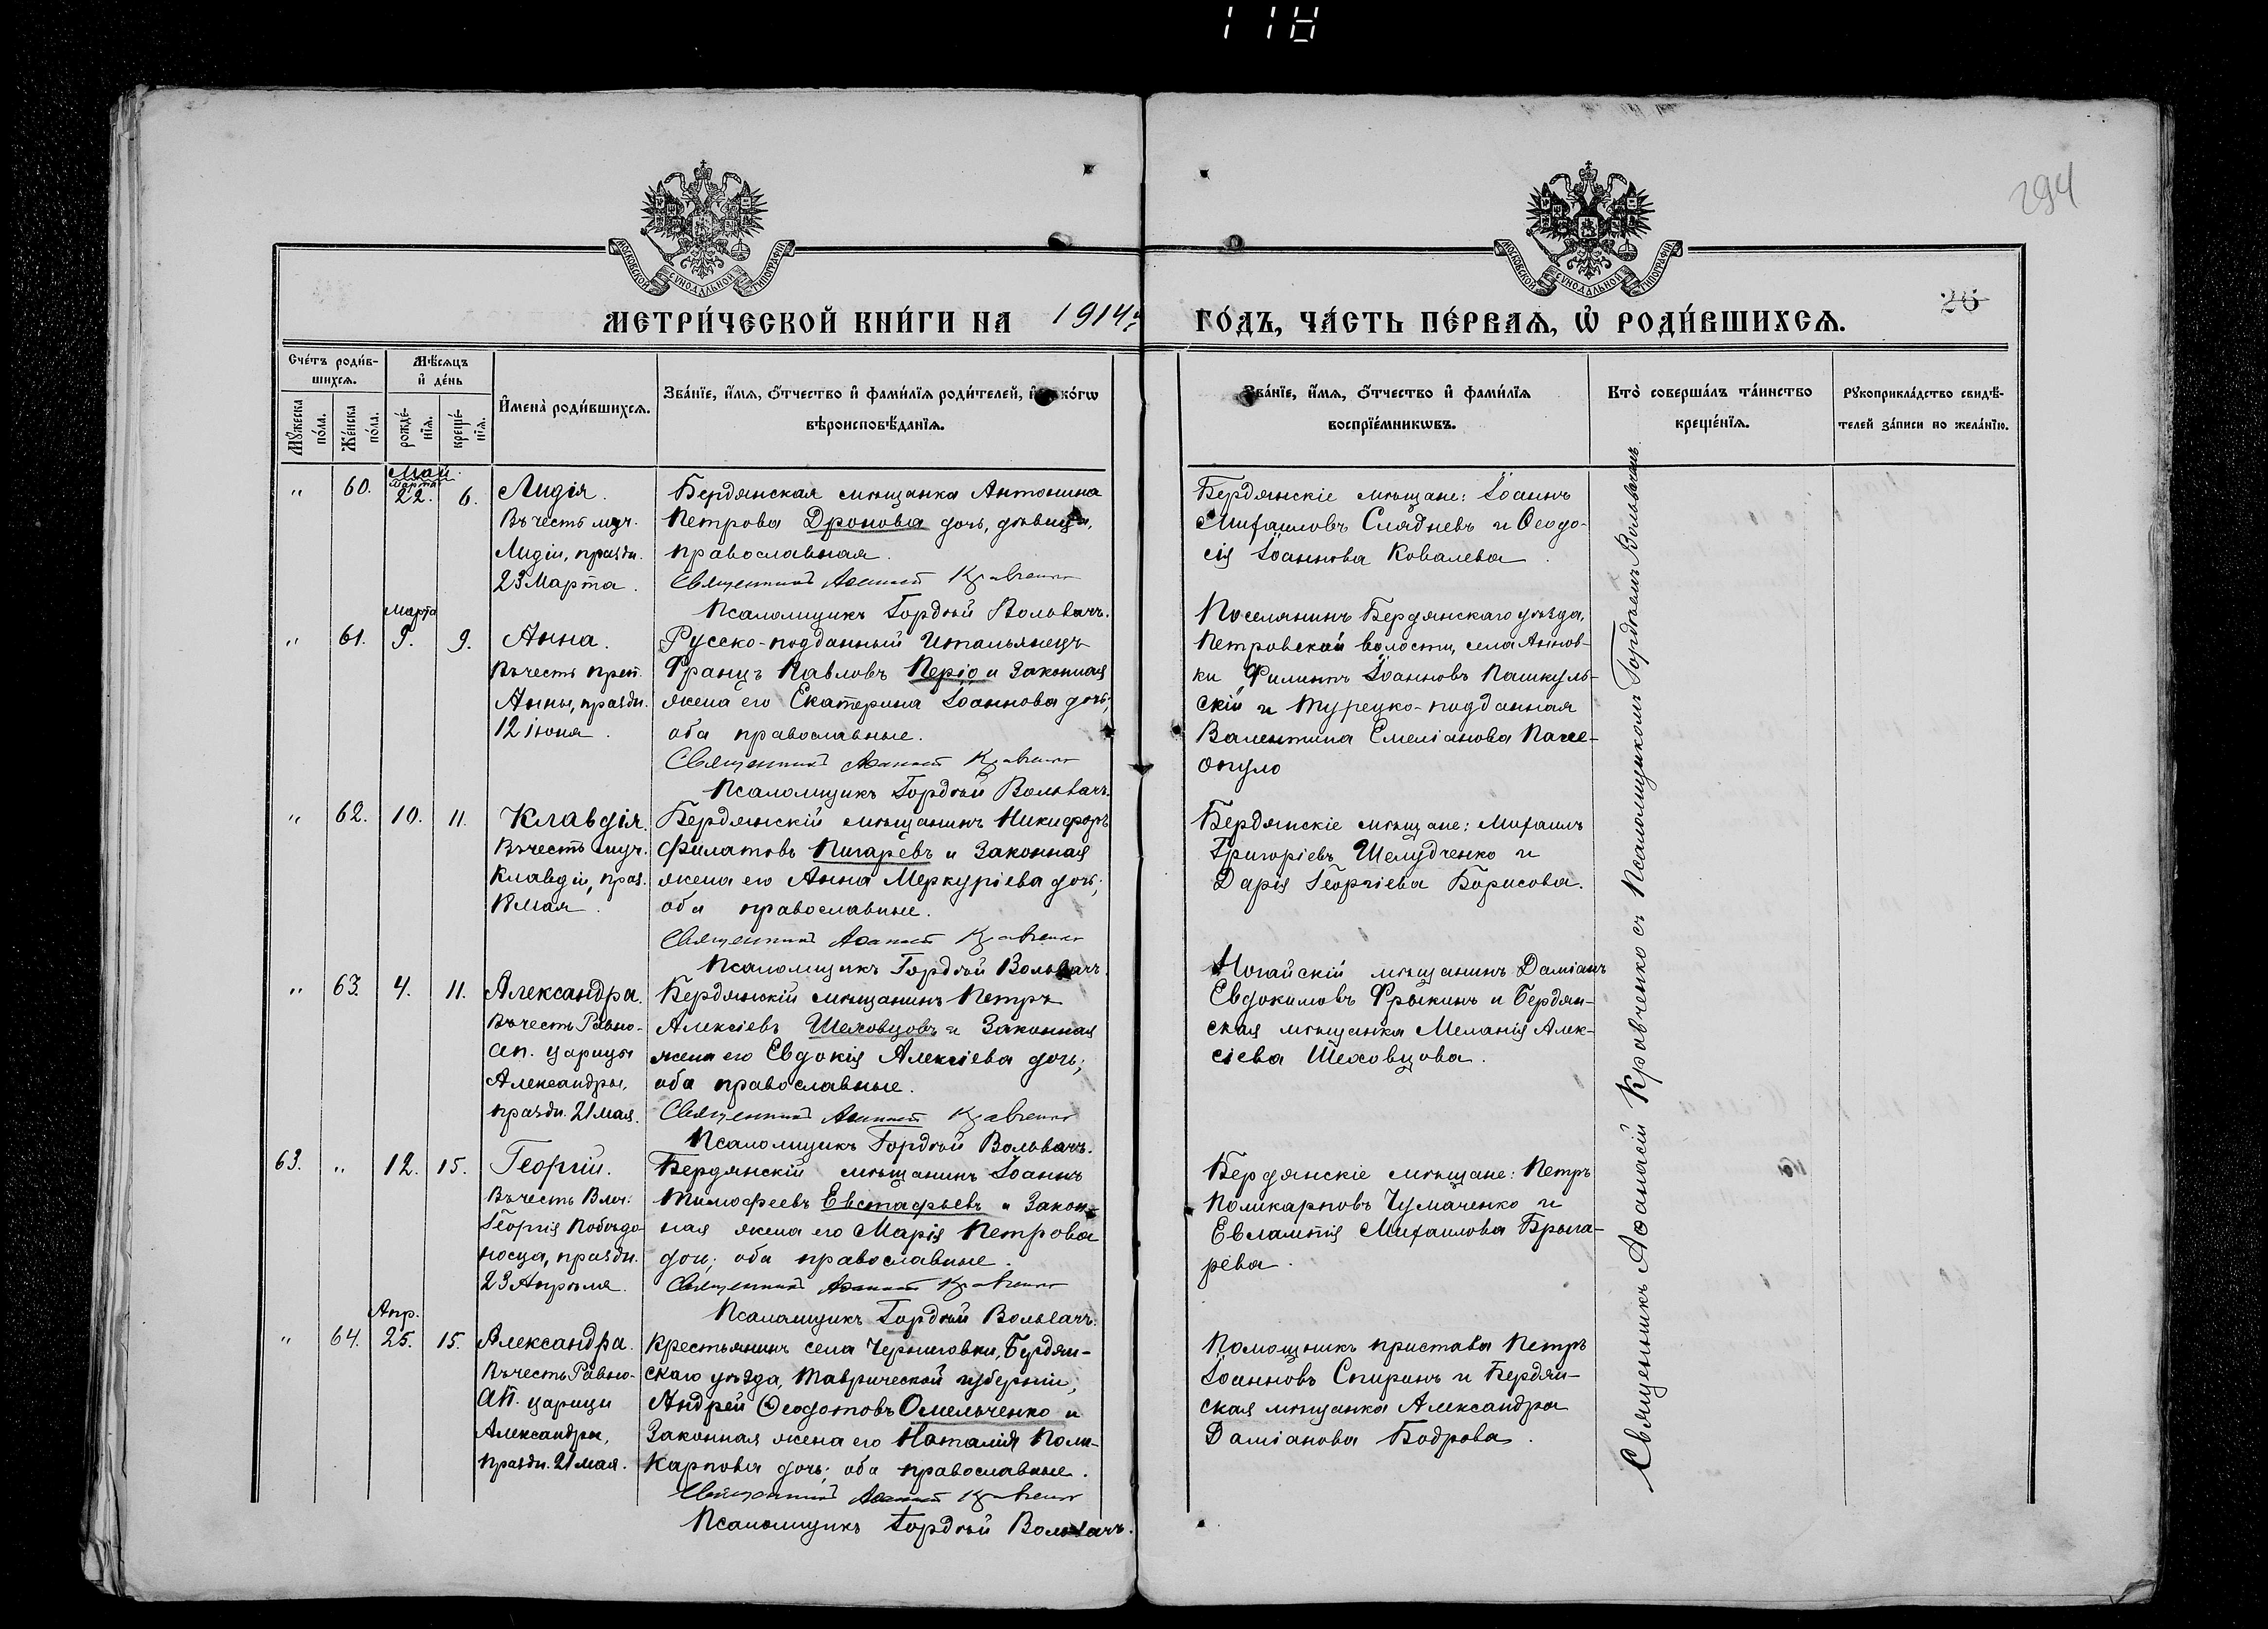 118
294
МОСКОВСКОЙ СѴНОДАЛЬНОЙ ТИПОГРАФІИ
МОСКОВСКОЙ СѴНОДАЛЬНОЙ ТИПОГРАФІИ
26
МЕТРИ́ЧЕСКОЙ КНИ́ГИ НА 1914 г.
ГО́ДЪ, ЧА́СТЬ ПЕ́РВАѦ, Ѡ҆ РОДИ́ВШИХСѦ.
Сче́тъ роди́в-
шихсѧ.
Мѣ́сѧцъ
и҆ де́нь
Мꙋ́жеска
по́ла.
Же́нска
по́ла.
рожде́-
нїѧ.
креще́-
нїѧ.
И҆мена̀ роди́вшихсѧ.
Зва́нїе, и҆́мѧ, ѻ҆́тчество и҆ фами́лїѧ роди́телей, и҆ како́гѡ
вѣроисповѣ́данїѧ.
Зва́нїе, и҆́мѧ, ѻ҆́тчество и҆ фами́лїѧ
воспрїе́мникѡвъ.
Кто̀ соверша́лъ та́инство
креще́нїѧ.
Рꙋкоприкла́дство свидѣ́-
телей за́писи по жела́нїю.
Май.
Марта
" 60. 22. 6. Лидія.
Въ честь муч.
Лидіи, праздн.
23 Марта.
Бердянская мѣщанка Антонина
Петрова Дронова дочь, дѣвица,
православная.
Священникъ Аѳанасій Кравченко
Псаломщикъ Гордѣй Вольвачъ.
Бердянскіе мѣщане: Іоаннъ
Михаиловъ Слядневъ и Ѳеодо-
сія Іоаннова Ковалева.
Марта
" 61. 9. 9. Анна.
Въ честь преп.
Анны, праздн.
12 іюня.
Русско-подданный Итальянецъ
Францъ Павловъ Періо и законная
жена его Екатерина Іоаннова дочь;
оба православные.
Священникъ Аѳанасій Кравченко
Псаломщикъ Гордѣй Вольвачъ.
Поселянинъ Бердянскаго уѣзда,
Петровской волости, села Аннов-
ки Филиппъ Іоанновъ Пашкуль-
скій и турецко-подданная
Валентина Емеліанова
опуло
" 62. 10. 11. Клавдія.
Въ честь муч.
Клавдіи, праз.
18 мая.
Бердянскій мѣщанинъ Никифоръ
Филатовъ Пигаревъ и законная
жена его Анна Меркуріева дочь;
оба православные.
Священникъ Аѳанасій Кравченко
Псаломщикъ Гордѣй Вольвачъ.
Бердянскіе мѣщане: Михаилъ
Григоріевъ Шелудченко и
Дарія Георгіева Борисова.
" 63. 4. 11. Александра.
Въ честь Равно-
ап. царицы
Александры,
праздн. 21 мая.
Бердянскій мѣщанинъ Петръ
Алексіевъ Шеховцовъ и законная
жена его Евдокія Алексіева дочь;
оба православные.
Священникъ Аѳанасій Кравченко
Псаломщикъ Гордѣй Вольвачъ.
Ногайскій мѣщанинъ Даміанъ
Евдокимовъ Фрыкинъ и Бердян-
ская мѣщанка Меланія Алек-
сіева Шеховцова.
63. " 12. 15. Георгій.
Въ честь Влмч.
Георгія Побѣдо-
носца, праздн.
23 Апрѣля.
Бердянскій мѣщанинъ Іоаннъ
Тимофеевъ Евстафьевъ и закон-
ная жена его Марія Петрова
дочь; оба православные.
Священникъ Аѳанасій Кравченко
Псаломщикъ Гордѣй Вольвачъ.
Бердянскіе мѣщане: Петръ
Поликарповъ Чумаченко и
Евлампія Михаилова Брыга-
рева.
Апр.
" 64. 25. 15. Александра.
Въ честь Равно-
ап. царицы
Александры,
праздн. 21 мая.
Крестьянинъ села Черниговки, Бердян-
скаго уѣзда, Таврической губерніи,
Андрей Ѳеодотовъ Омельченко и
законная жена его Наталія Поли-
карпова дочь; оба православные.
Священникъ Аѳанасій Кравченко
Псаломщикъ Гордѣй Вольвачъ.
Помощникъ пристава Петръ
Іоанновъ Спиринъ и Бердян-
ская мѣщанка Александра
Даміанова Бодрова.
Священникъ Аѳанасій Кравченко съ Псаломщикомъ Гордѣемъ Вольвачемъ